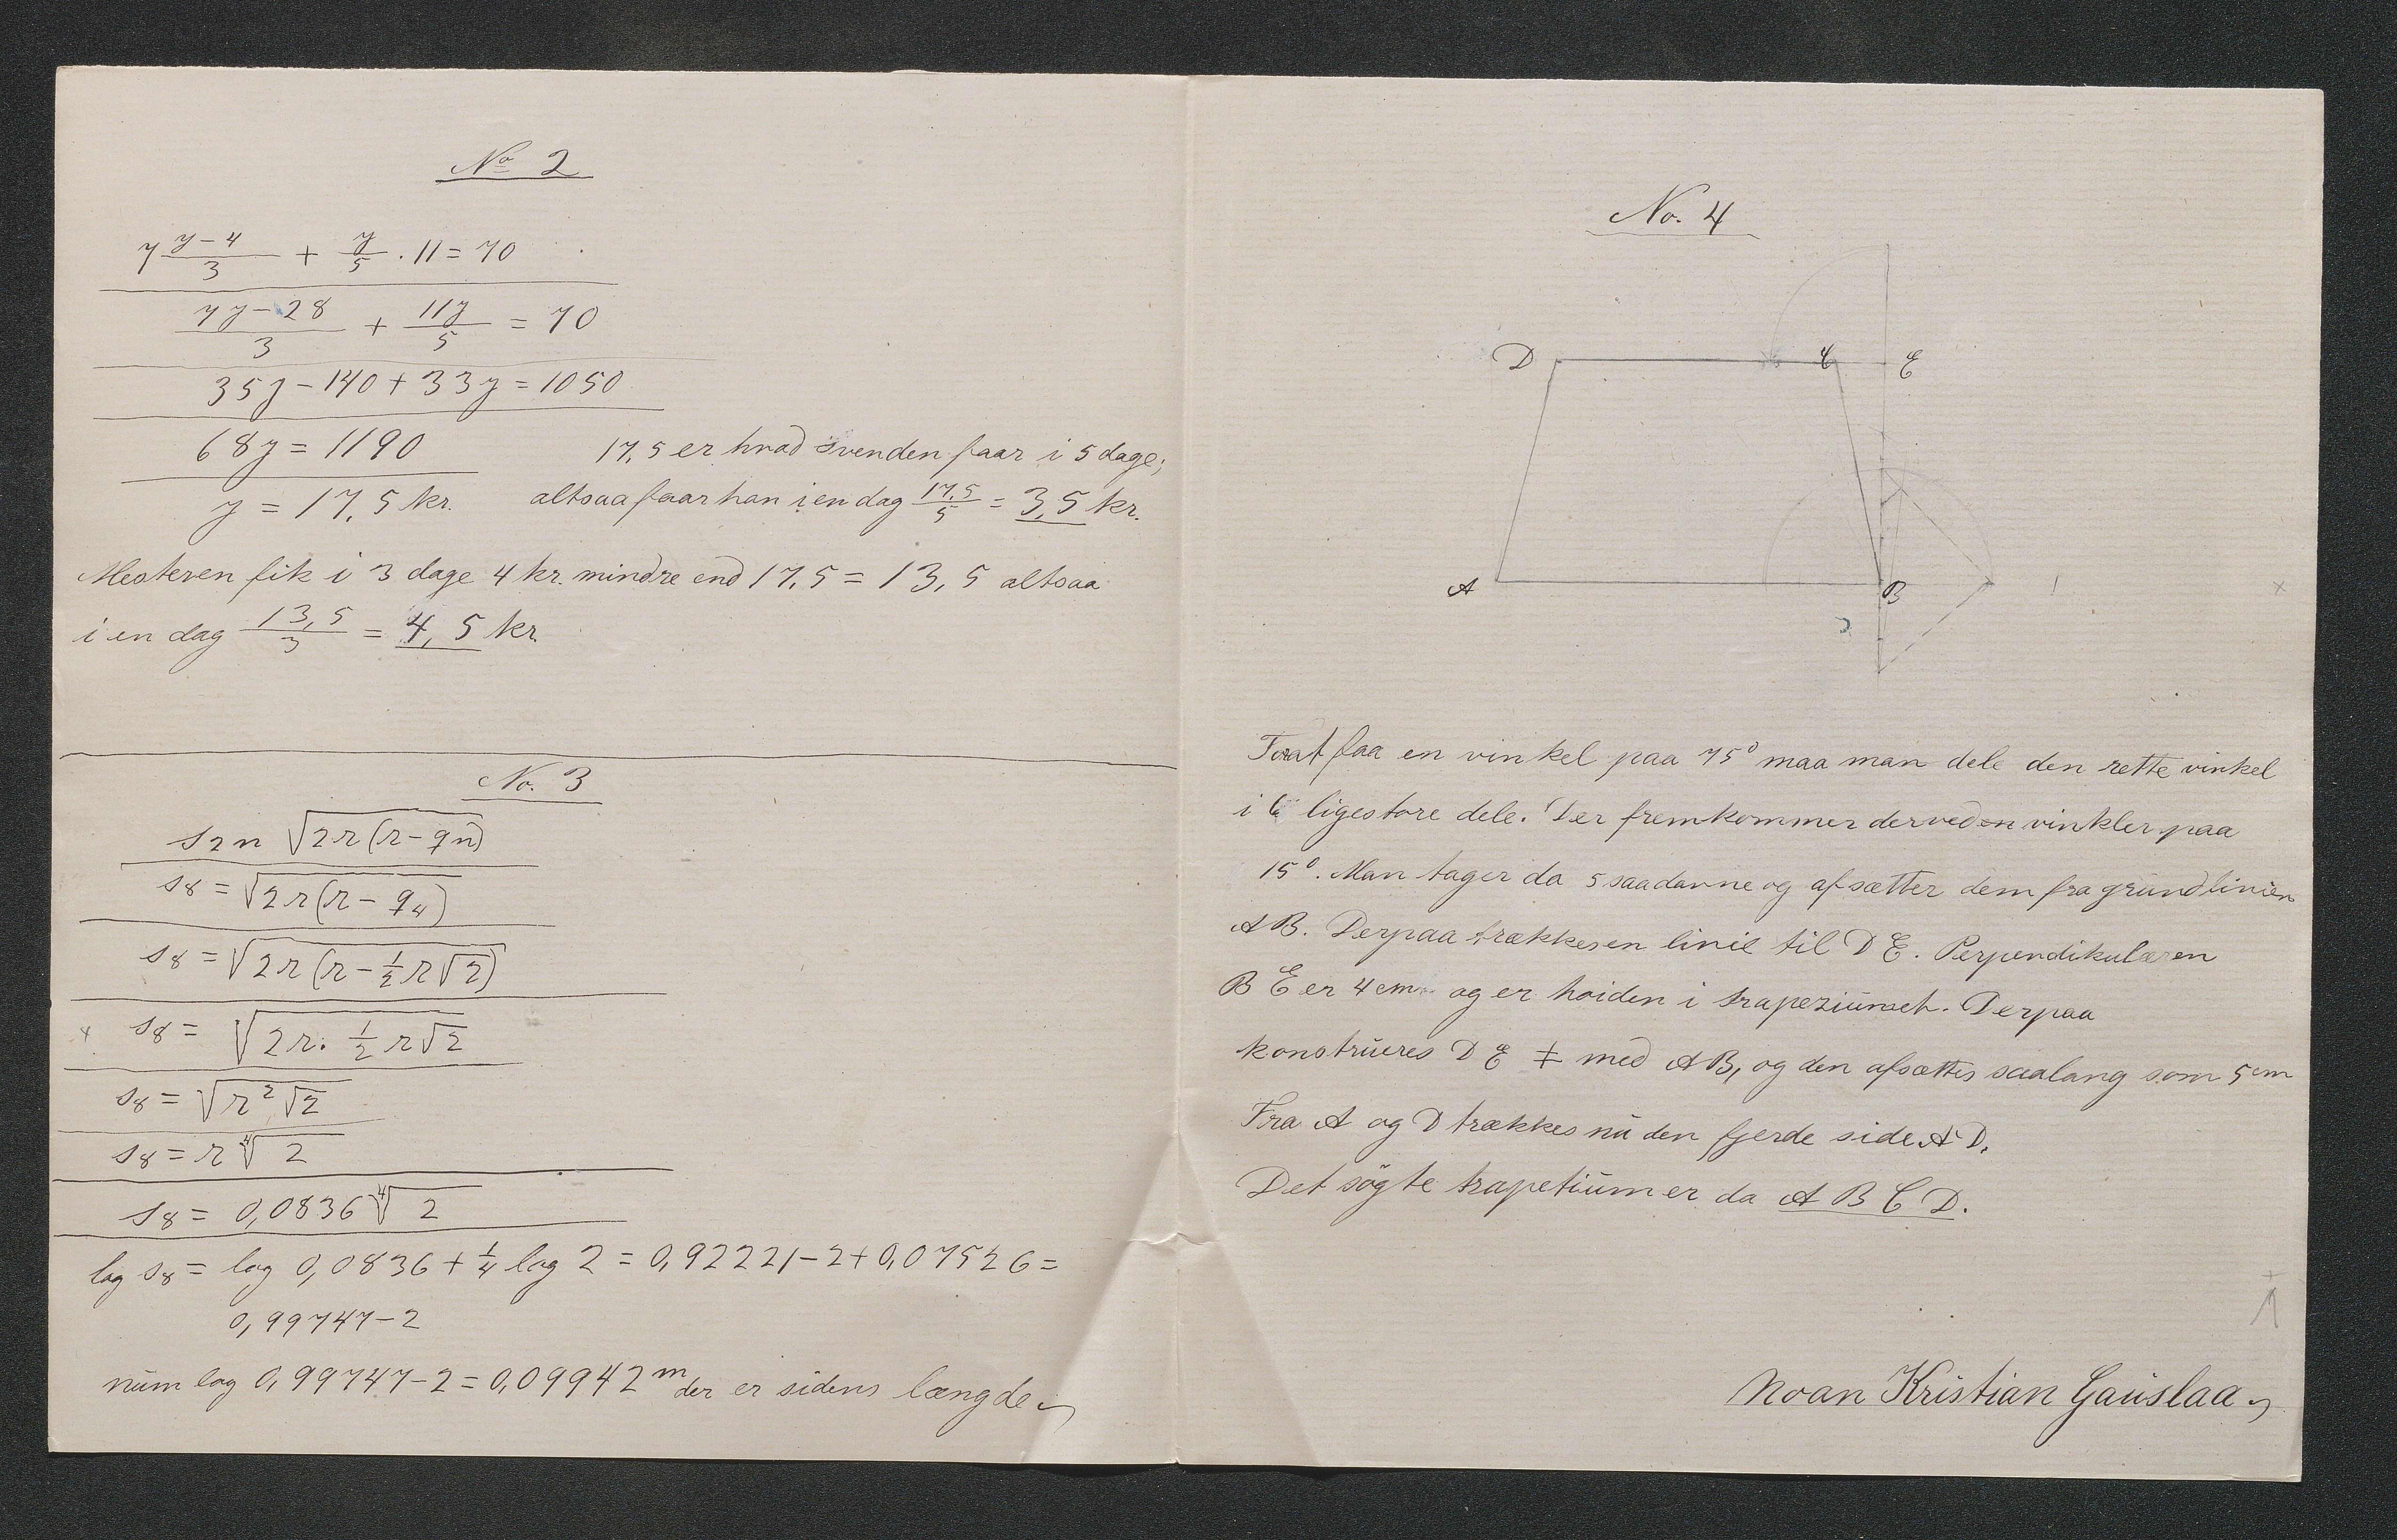 No 2
7 (y-4)/3 + y/5 · 11 = 70
(7y-28)/3 + 11y/5 = 70
35y - 140 + 33y = 1050
68y = 1190
y = 17,5 kr.
17,5 er hvad svenden faar i 5 dage;
altsaa faar han i en dag 17,5/5 = 3,5 kr.
Mesteren fik i 3 dage 4 kr. mindre end 17,5 = 13,5 altsaa
i en dag 13,5/3 = 4,5 kr.
No. 3
s2n √(2r(r-qn))
s8 = √(2r(r-q4))
s8 = √(2r(r-½r√2))
s8 = √(2r·½r√2)
s8 = √(r²√2)
s8 = r ∜2
s8 = 0,0836 ∜2
log s8 = log 0,0836 + ¼ log 2 = 0,92221-2+0,07526 =
0,99747-2
num log 0,99747-2 = 0,09942 m der er sidens længde
No. 4
D C E
A B
For at faa en vinkel paa 75° maa man dele den rette vinkel
i 6 ligestore dele. Der fremkommer derved vinkler paa
15°. Man tager da 5 saadanne og afsætter dem fra grundlinien
AB. Derpaa trækkes en linie til DE. Perpendikulæren
BE er 4 cm og er høiden i trapeziumet. Derpaa
konstrueres DE ‡ med AB, og den afsættes saalang som 5 cm
Fra A og D trækkes nu den fjerde side AD.
Det søgte trapetium er da A B C D.
Noan Kristian Gauslaa